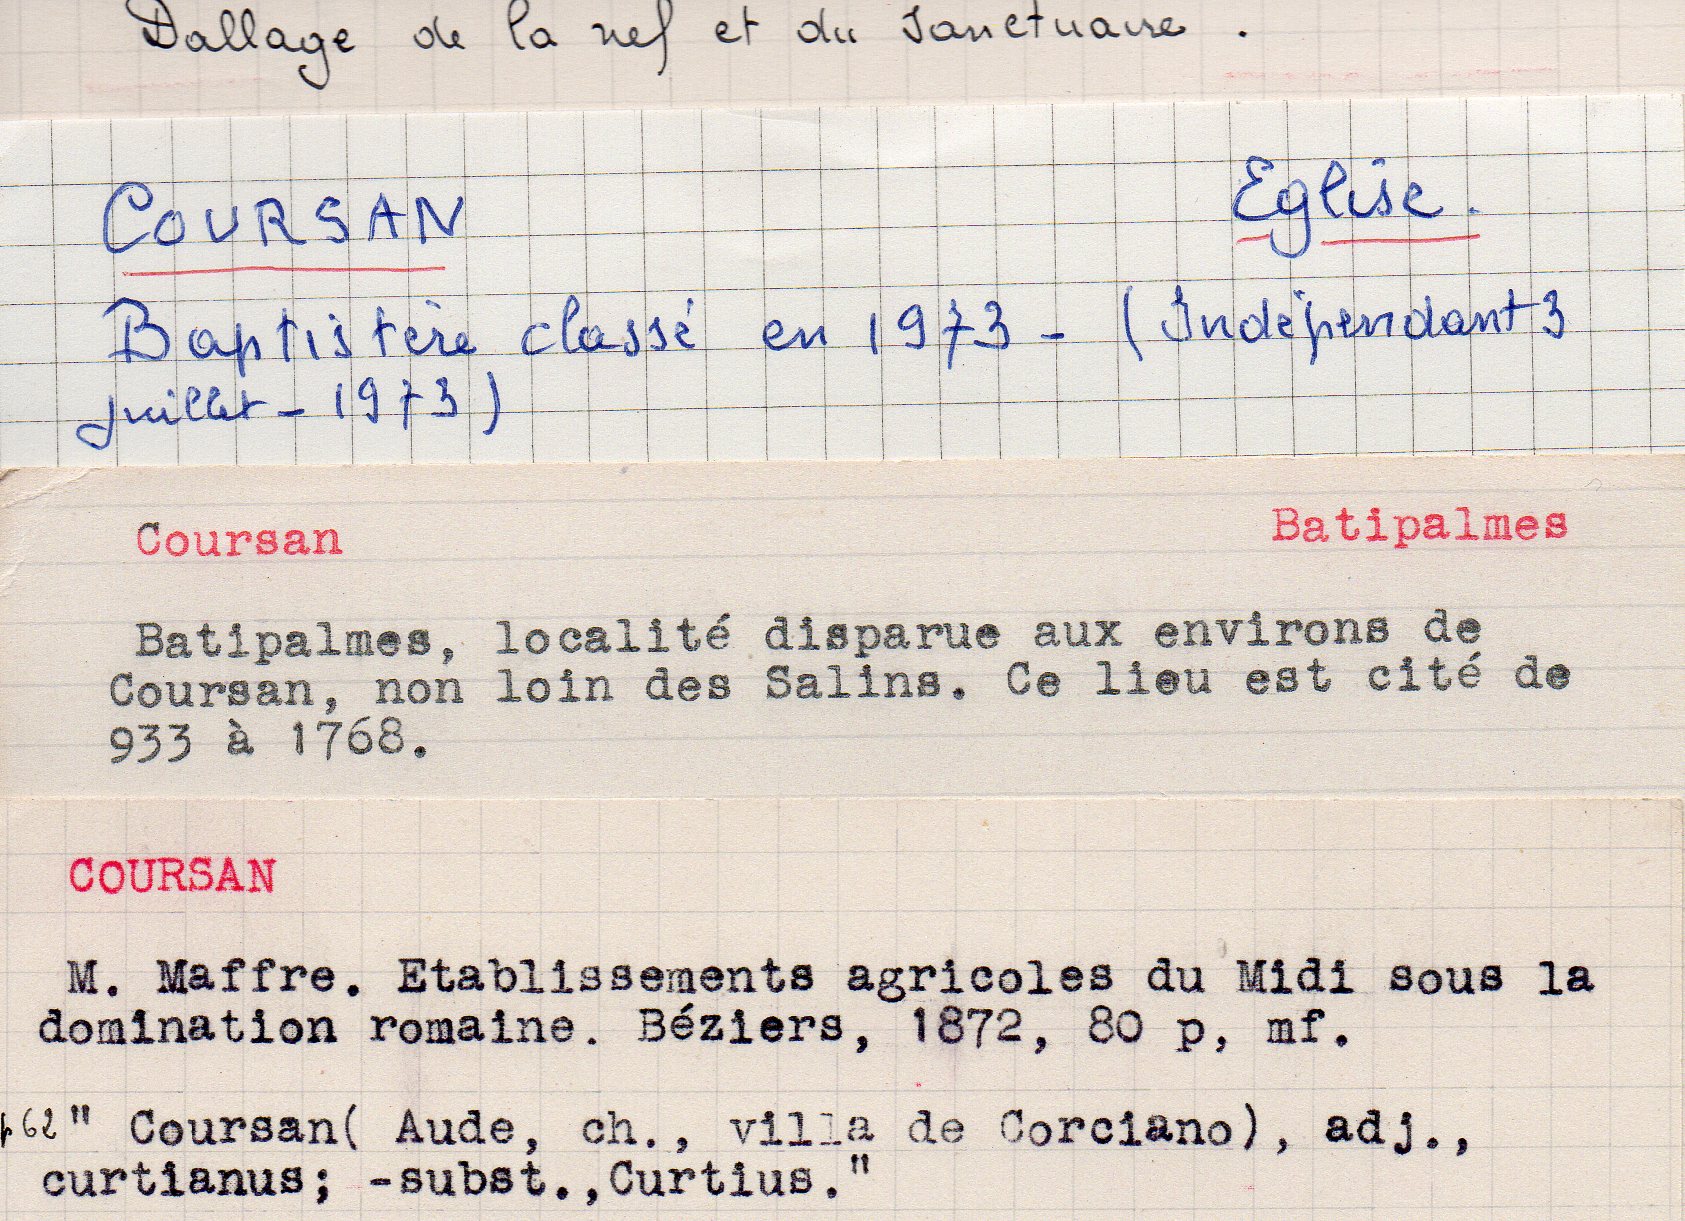 Dallage de la nef et du Sanctuaire.
COURSAN Eglise.
Baptistère classé en 1973 - (Indépendant 3
juillet - 1973)
Coursan Batipalmes
Batipalmes, localité disparue aux environs de
Coursan, non loin des Salins. Ce lieu est cité de
933 à 1768.
COURSAN
M. Maffre. Etablissements agricoles du Midi sous la
domination romaine. Béziers, 1872, 80 p, mf.
p 62 " Coursan( Aude, ch., villa de Corciano), adj.,
curtianus; -subst.,Curtius."